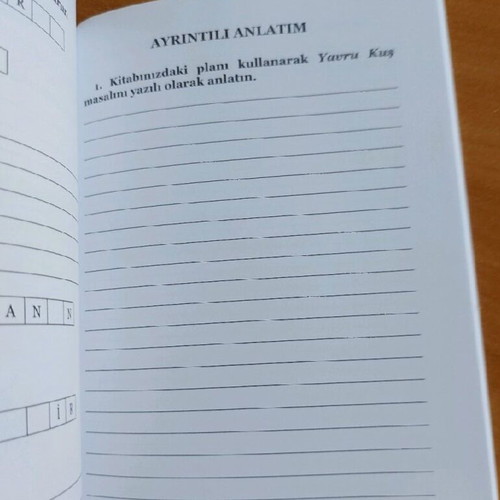 R
A N N
İ R
AYRINTILI ANLATIM
1. Kitabınızdaki planı kullanarak Yavru Kuş
masalını yazılı olarak anlatın.